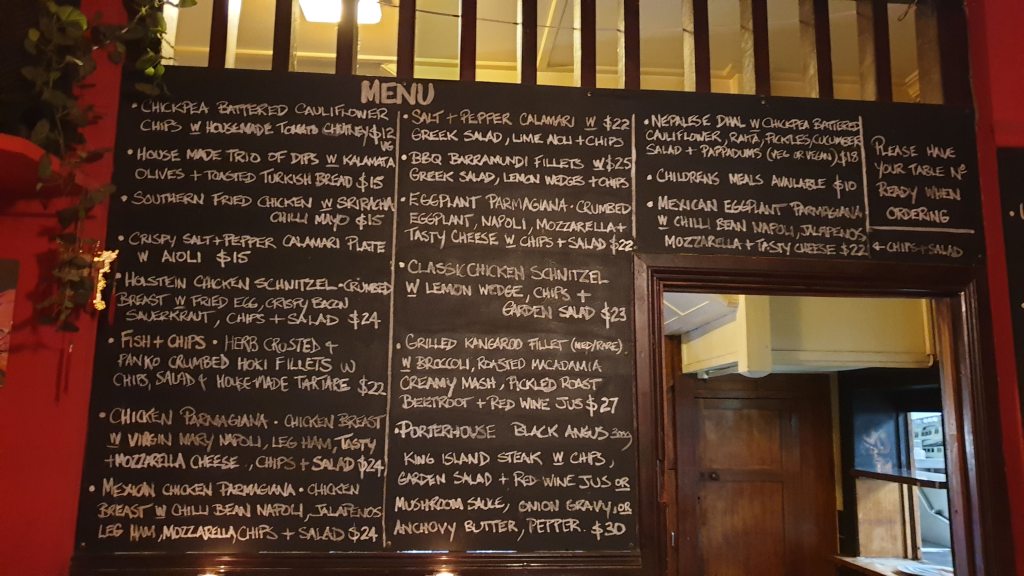 MENU
• CHICKPEA BATTERED CAULIFLOWER
CHIPS W HOUSEMADE TOMATO CHUTNEY $12
VG
• HOUSE MADE TRIO OF DIPS W KALAMATA
OLIVES + TOASTED TURKISH BREAD $15
• SOUTHERN FRIED CHICKEN W SRIRACHA
CHILLI MAYO $15
• CRISPY SALT + PEPPER CALAMARI PLATE
W AIOLI $15
• HOLSTEIN CHICKEN SCHNITZEL • CRUMBED
BREAST W FRIED EGG, CRISPY BACON
SAUERKRAUT, CHIPS + SALAD $24
• FISH + CHIPS • HERB CRUSTED +
PANKO CRUMBED HOKI FILLETS W
CHIPS, SALAD + HOUSE-MADE TARTARE $22
• CHICKEN PARMAGIANA • CHICKEN BREAST
W VIRGIN MARY NAPOLI, LEG HAM, TASTY
+ MOZZARELLA CHEESE, CHIPS + SALAD $24
• MEXICAN CHICKEN PARMAGIANA • CHICKEN
BREAST W CHILLI BEAN NAPOLI, JALAPENOS
LEG HAM, MOZZARELLA, CHIPS + SALAD $24
• SALT + PEPPER CALAMARI W $22
GREEK SALAD, LIME AIOLI + CHIPS
• BBQ BARRAMUNDI FILLETS W $25
GREEK SALAD, LEMON WEDGES + CHIPS
• EGGPLANT PARMAGIANA • CRUMBED
EGGPLANT, NAPOLI, MOZZARELLA +
TASTY CHEESE W CHIPS + SALAD $22
• CLASSIC CHICKEN SCHNITZEL
W LEMON WEDGE, CHIPS +
GARDEN SALAD $23
• GRILLED KANGAROO FILLET (MED/RARE)
W BROCCOLI, ROASTED MACADAMIA
CREAMY MASH, PICKLED ROAST
BEETROOT + RED WINE JUS $27
• PORTERHOUSE BLACK ANGUS 300g
KING ISLAND STEAK W CHIPS,
GARDEN SALAD + RED WINE JUS OR
MUSHROOM SAUCE, ONION GRAVY, OR
ANCHOVY BUTTER, PEPPER. $30
• NEPALESE DHAL W CHICKPEA BATTERED
CAULIFLOWER, RAITA, PICKLES, CUCUMBER
SALAD + PAPPADUMS (VEG OR VEGAN) $18
• CHILDRENS MEALS AVAILABLE $10
• MEXICAN EGGPLANT PARMAGIANA
W CHILLI BEAN NAPOLI, JALAPENOS
MOZZARELLA + TASTY CHEESE $22 + CHIPS + SALAD
PLEASE HAVE
YOUR TABLE Nº
READY WHEN
ORDERING